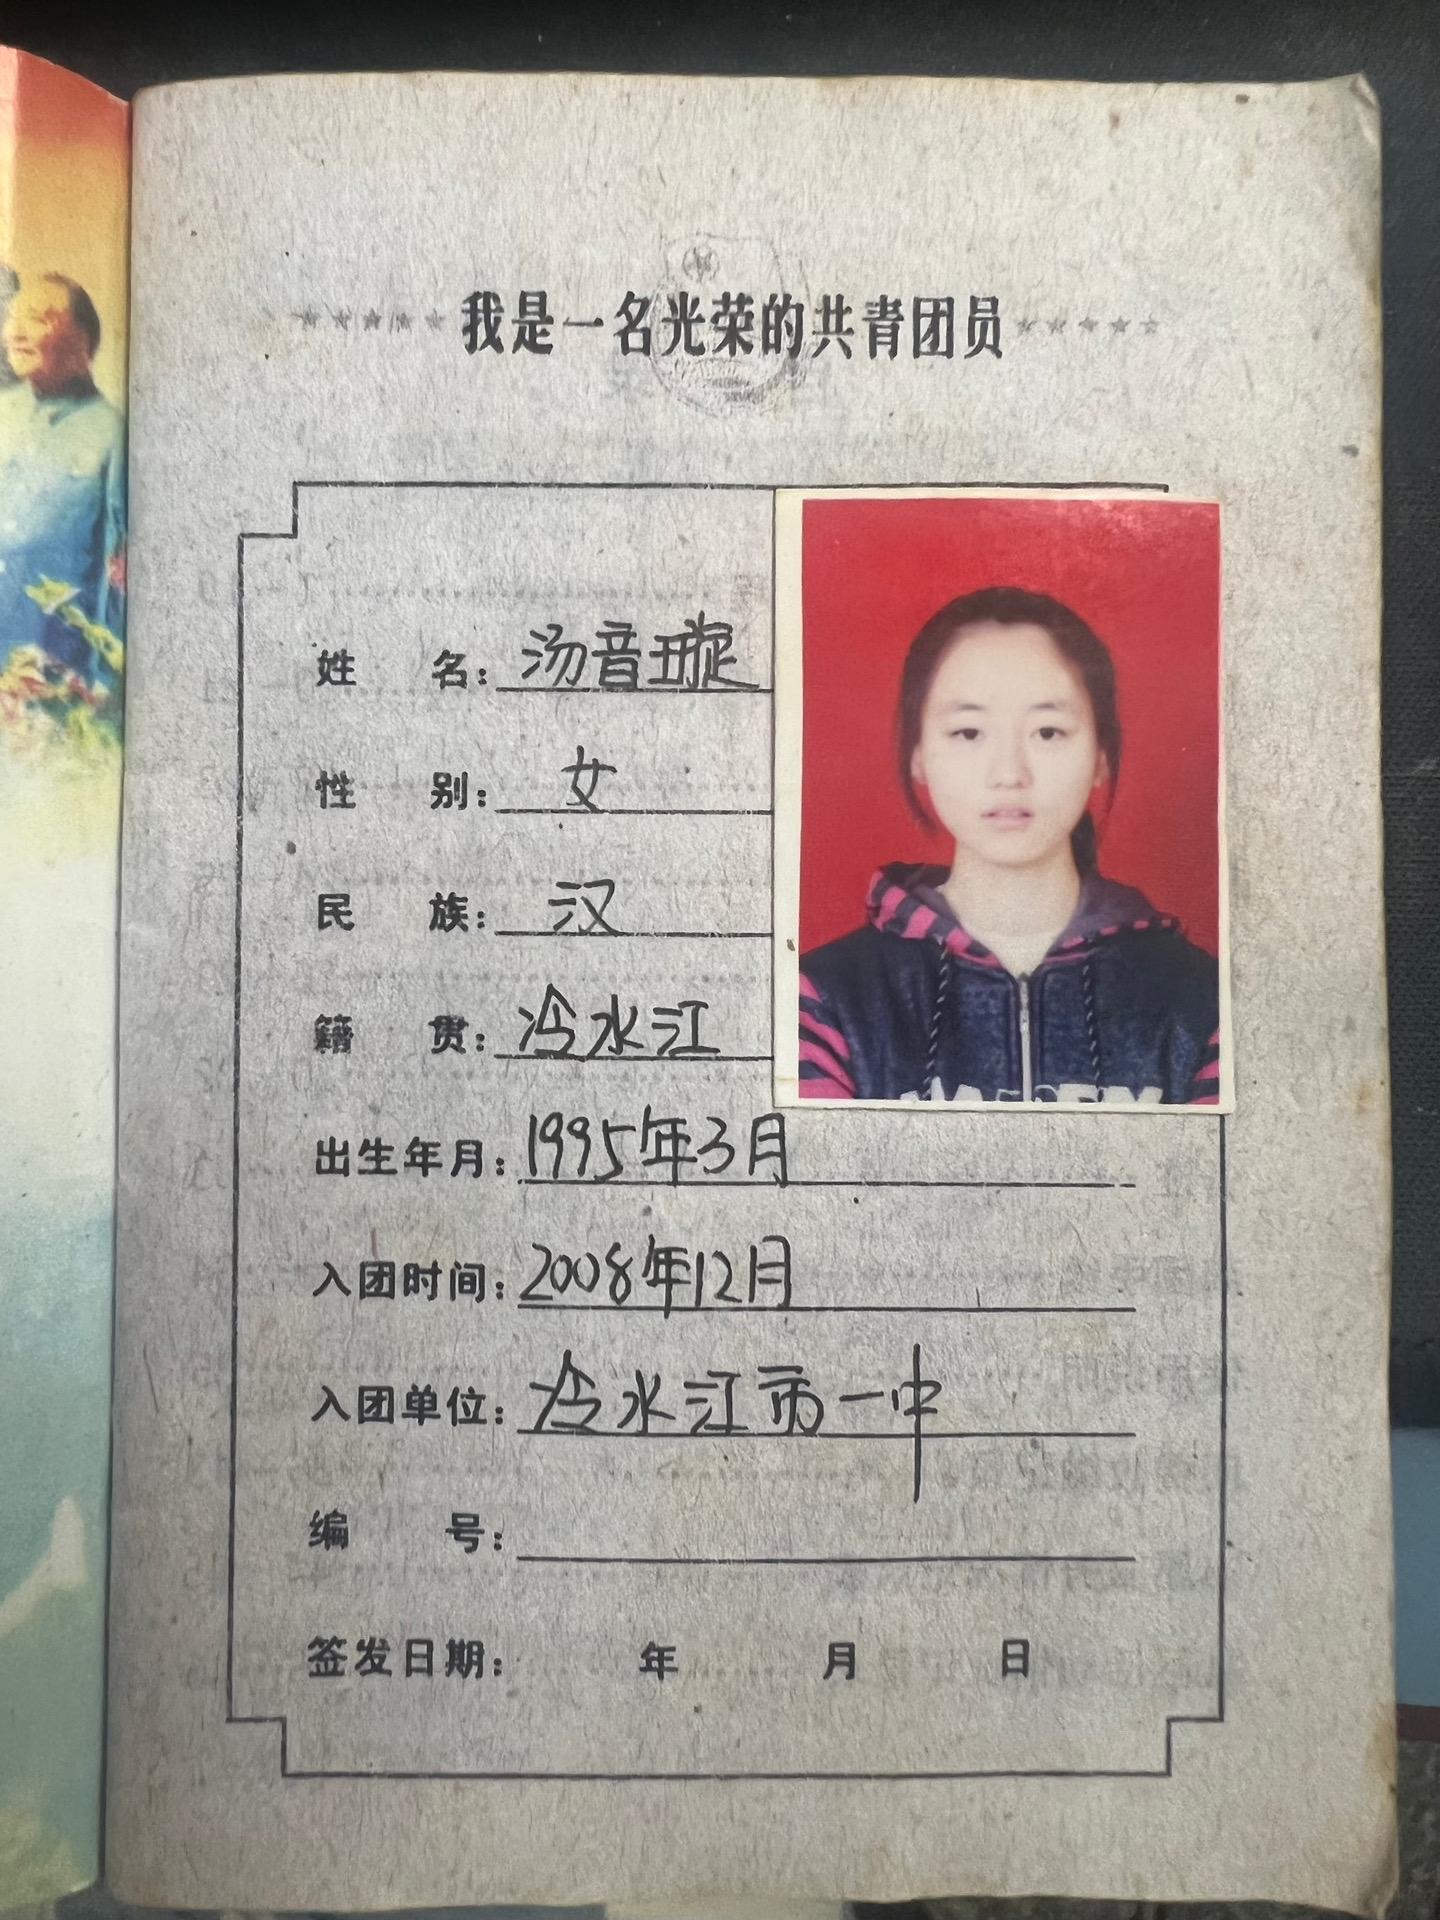 我是一名光荣的共青团员
姓 名：汤音璇
性 别：女
民 族：汉
籍 贯：冷水江
出生年月：1995年3月
入团时间：2008年12月
入团单位：冷水江市一中
编 号：
签发日期： 年 月 日